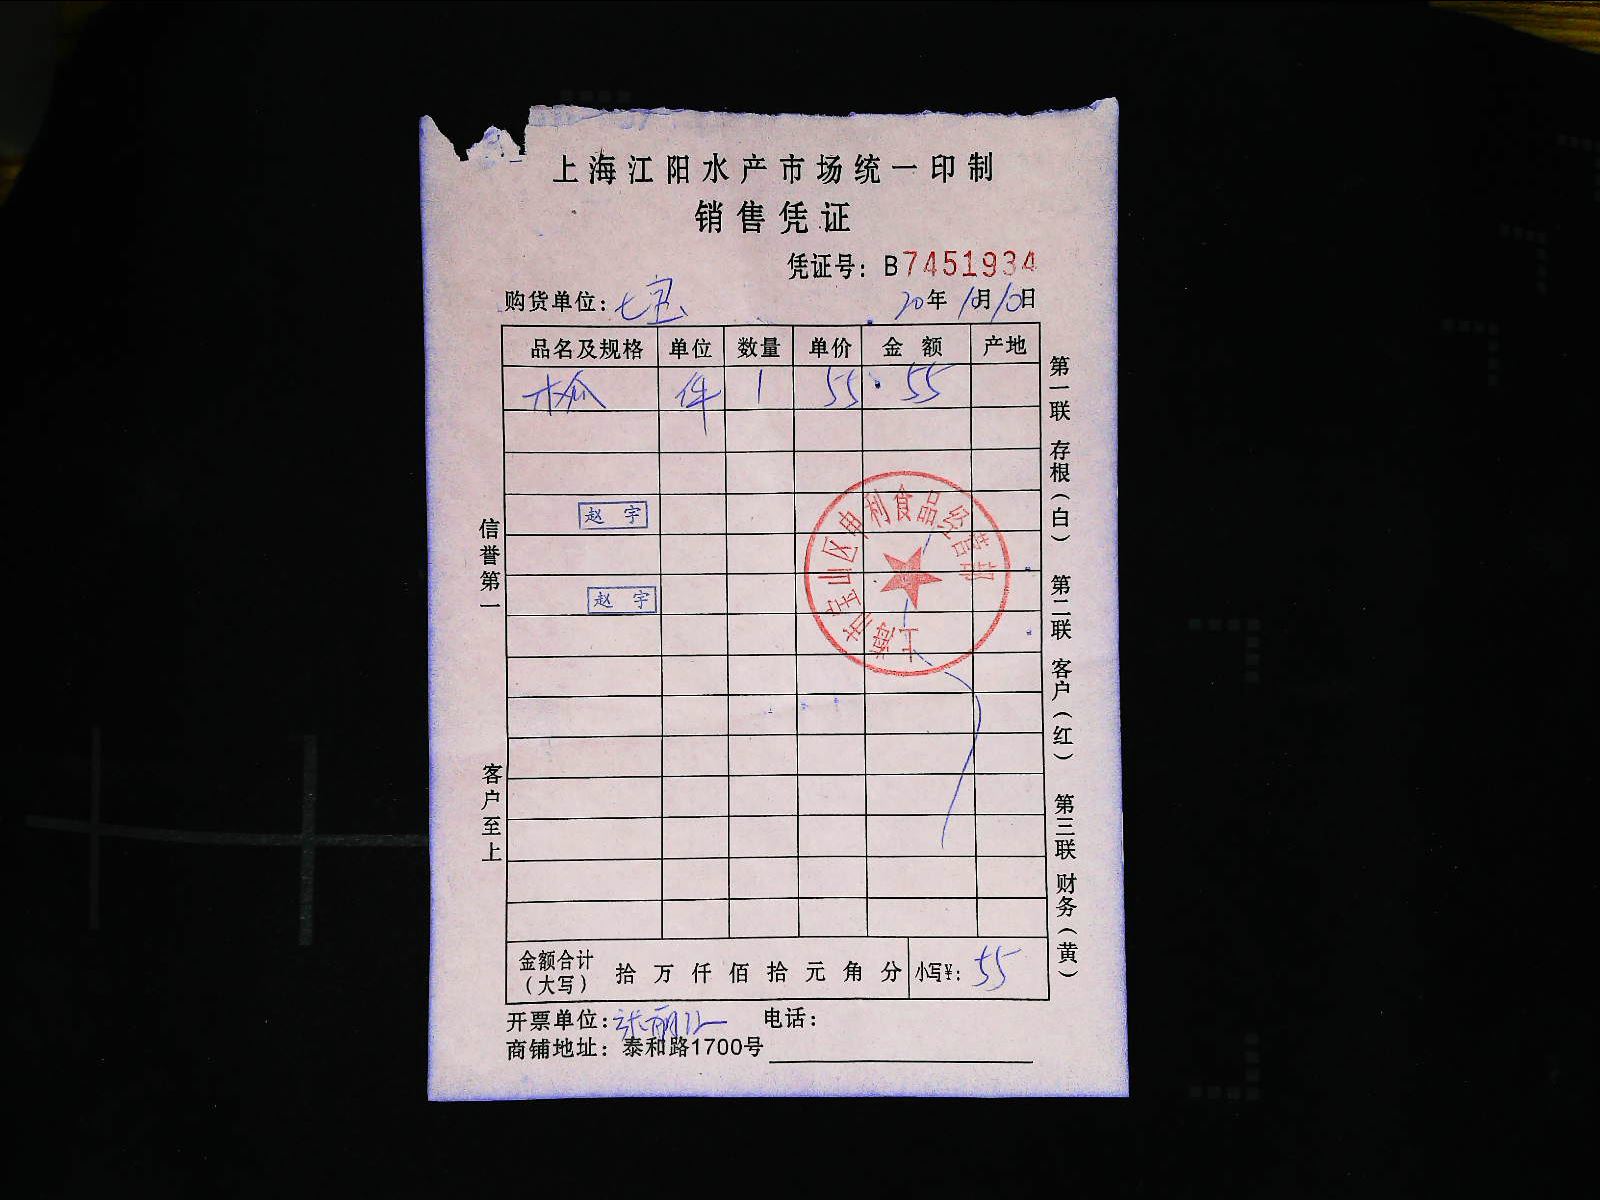 上海江阳水产市场统一印制
销售凭证
凭证号：B7451934
购货单位：七宝 20年10月10日
品名及规格 单位 数量 单价 金额 产地
木瓜 件 1 55 55
赵宇
赵宇
上海市宝山区申利食品经营部
信誉第一
客户至上
第一联 存根（白） 第二联 客户（红） 第三联 财务（黄）
金额合计（大写） 拾万仟佰拾元角分 小写¥：55
开票单位： 电话：
商铺地址：泰和路1700号